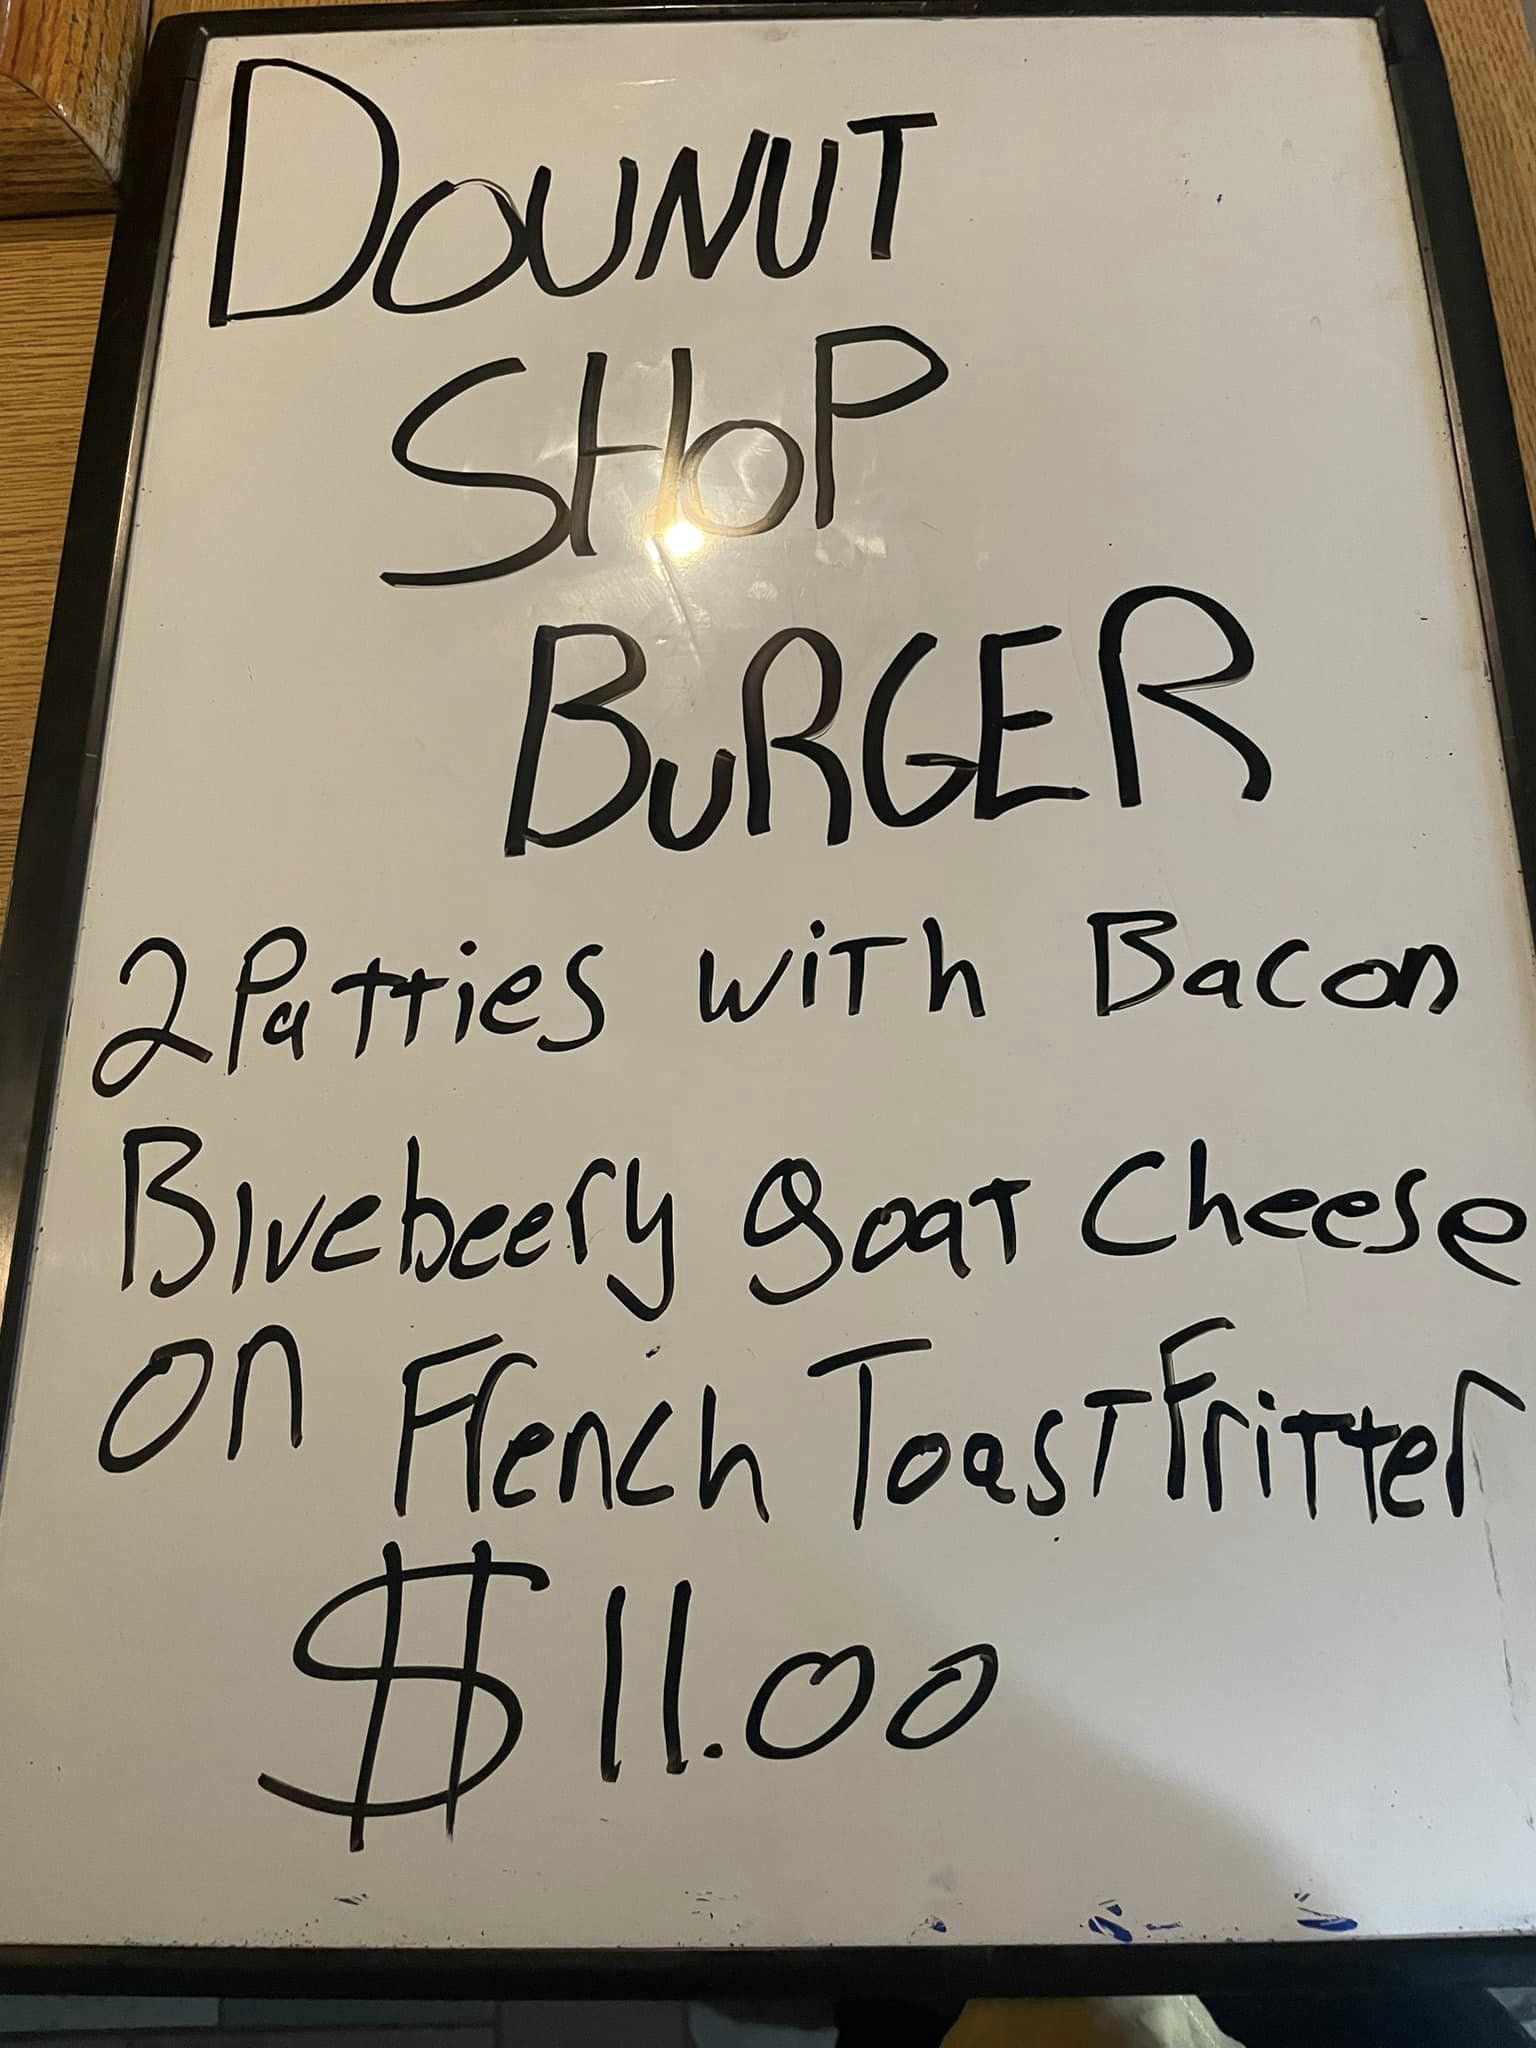 DOUNUT
SHOP
BURGER
2 Patties with Bacon
Bluebeery goat Cheese
on French Toast Fritter
$11.00